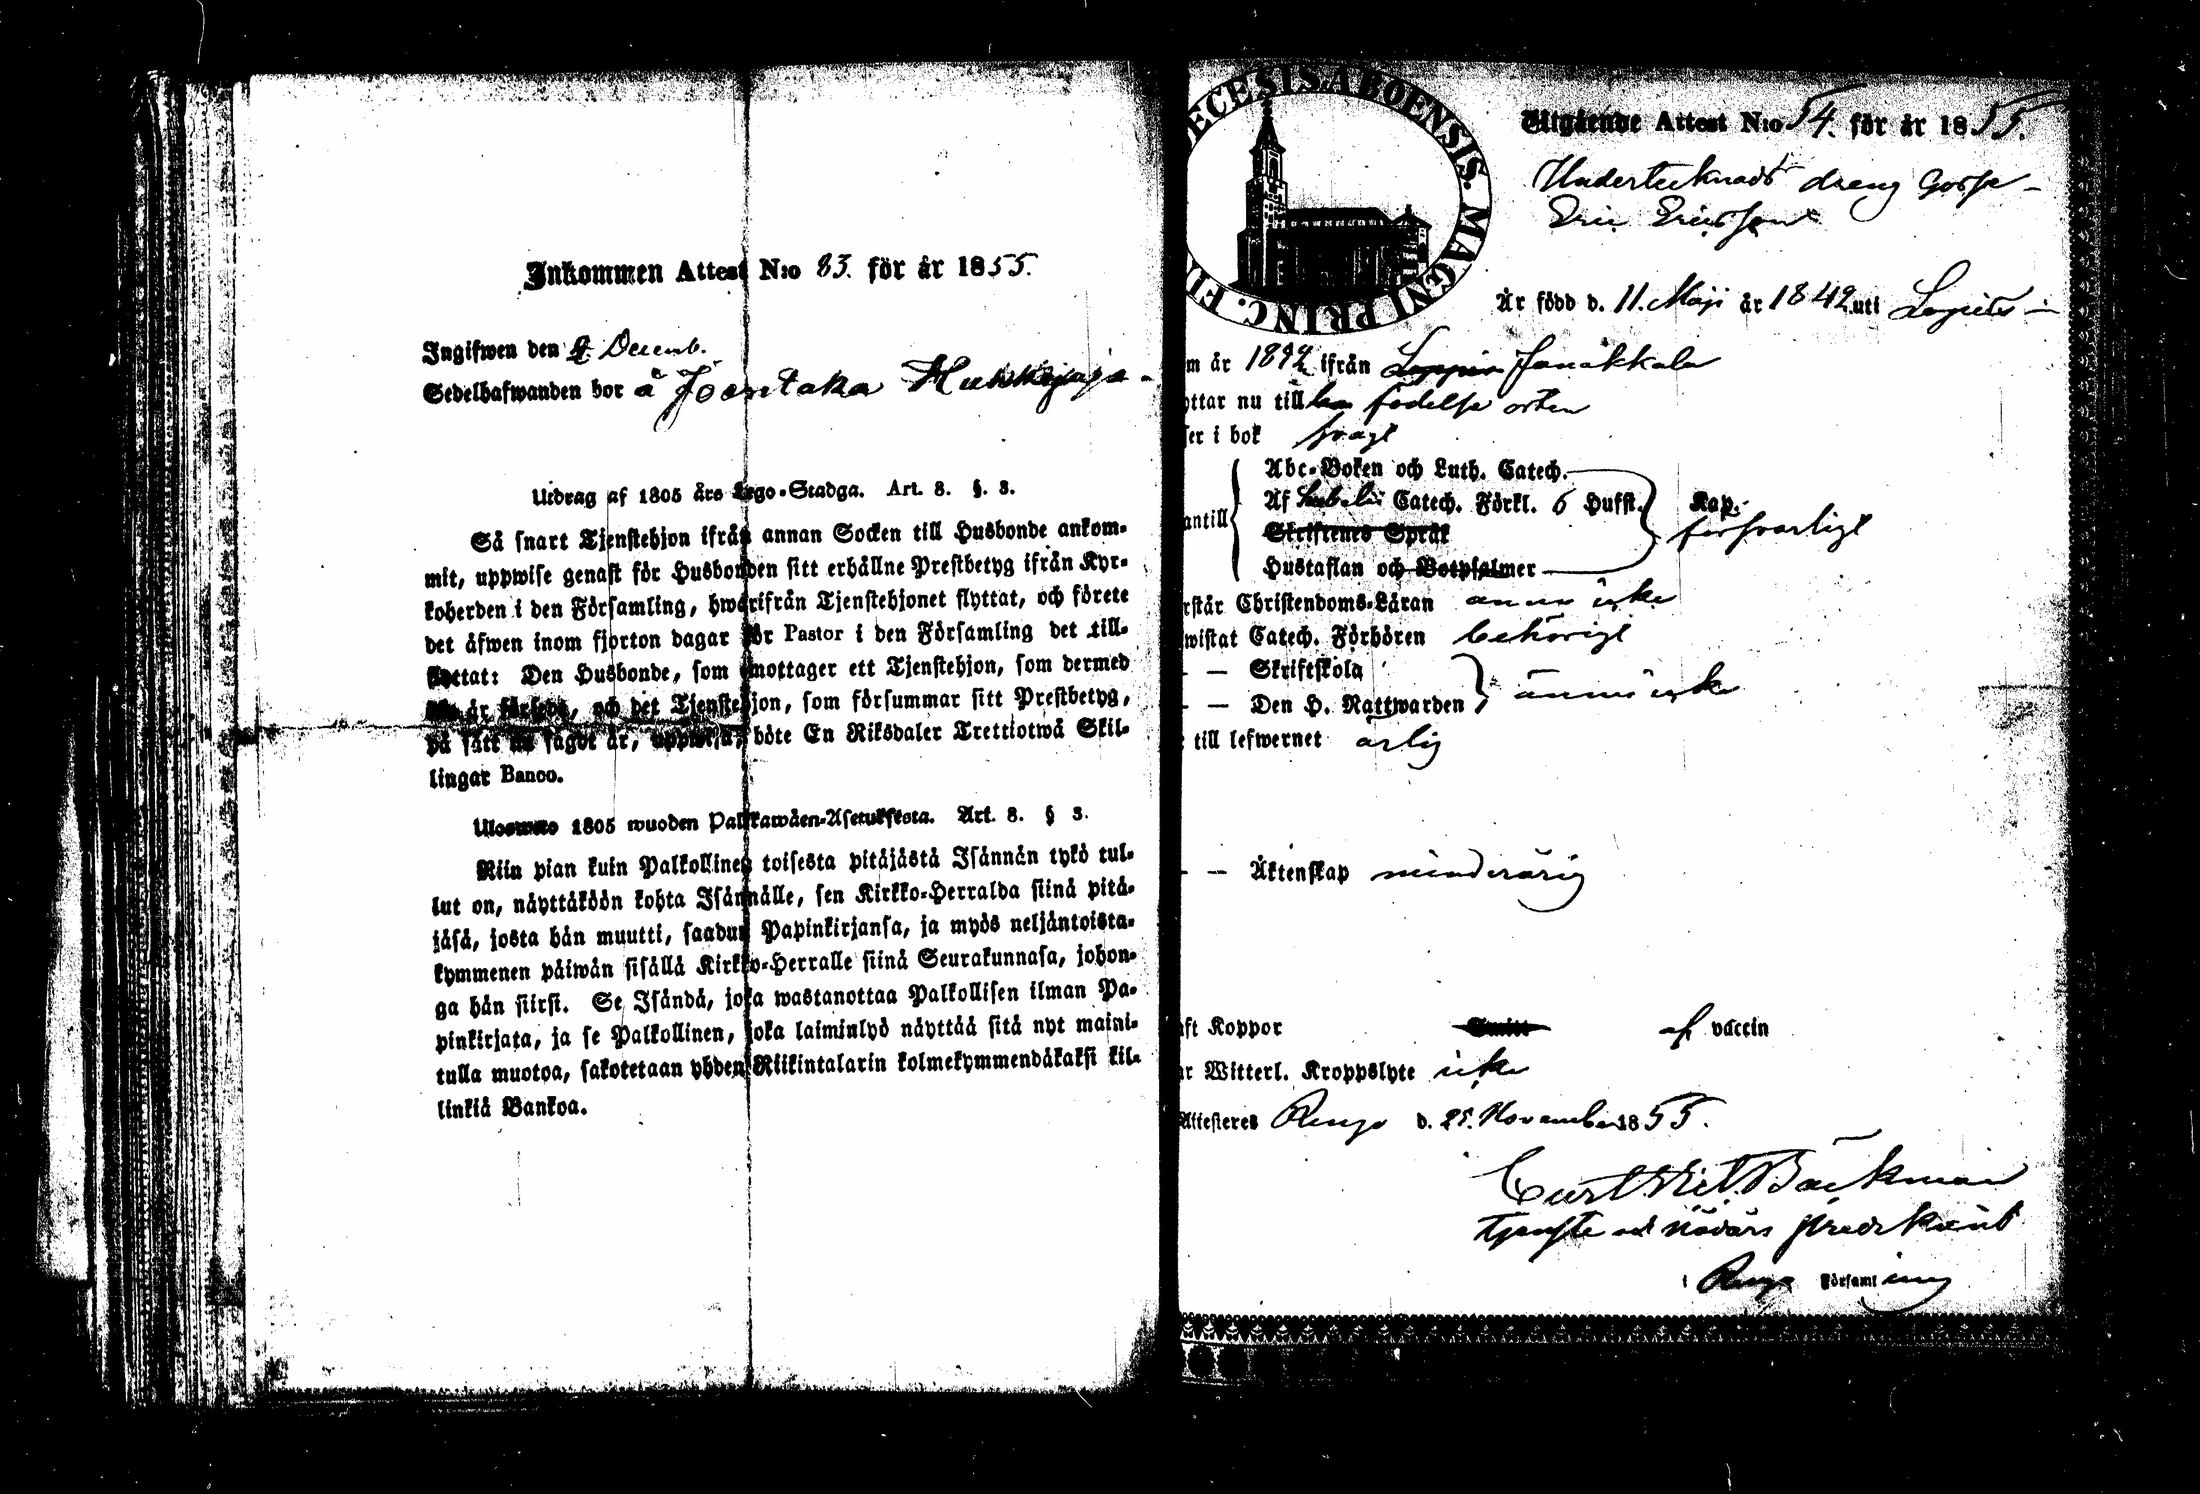 Inkommen Attest N:o 83. för år 1855.
Ingifwen den 4 Decemb.
Sedelhafwanden bor å Joentaka
Utdrag af 1805 års Lego-Stadga. Art. 8. §. 3.
Så snart Tjenstehjon ifrån annan Socken till Husbonde ankom-
mit, uppwise genast för Husbonden sitt erhållne Prestbetyg ifrån Kyr-
koherden i den Församling, hwarifrån Tjenstehjonet flyttat, och förete
det äfwen inom fjorton dagar för Pastor i den Församling det till-
flyttat: Den Husbonde, som emottager ett Tjenstehjon, som dermed
är och det Tjenstehjon, som försummar sitt Prestbetyg,
på sätt nu sagdt är, uppwisa, böte En Riksdaler Trettiotwå Skil-
lingar Banco.
Ulosweto 1805 wuoden Palkkawäen-Asetuksesta. Art. 8. § 3.
Niin pian kuin Palkollinen toisesta pitäjästä Isännän tykö tul-
lut on, näyttäköön kohta Isännälle, sen Kirkko-Herralda siinä pitä-
jäsä, josta hän muutti, saadun Papinkirjansa, ja myös neljäntoista-
kymmenen päiwän sisällä Kirkko-Herralle siinä Seurakunnasa, johon-
ga hän siirsi. Se Isändä, joka wastanottaa Palkollisen ilman Pa-
pinkirjata, ja se Palkollinen, joka laiminlyö näyttää sitä nyt maini-
tulla muotoa, sakotetaan yhden Riikintalarin kolmekymmendäkaksi kil-
linkiä Bankoa.
ECESIS ABOENSIS. MAGNI PRINC. FI
Utgående Attest N:o 54. för år 1855.
dreng Gosse
Eric Ericsson
Är född d. 11. Maji år 1842 uti
m år ifrån Janakkala
ottar nu till födelse orten
ser i bok svagt
Abc-Boken och Luth. Catech.
antill Af Catech. Förkl. 6 Hufst. Kap. försvarligt
Skriftenes Språk
Hustaflan och Botpsalmer
rstår Christendoms-Läran ännu icke
wistat Catech. Förhören behörigt
— — Skriftskola
— — Den H. Nattwarden ännu icke
till lefwernet ärlig
— — Äktenskap minderårig
aft Koppor af vaccin
ar Witterl. Kroppslyte icke
Attesteres Rengo d. 25. November 1855.
Bäckman
tjenste och nådårs Predikant
i Rengo Församling